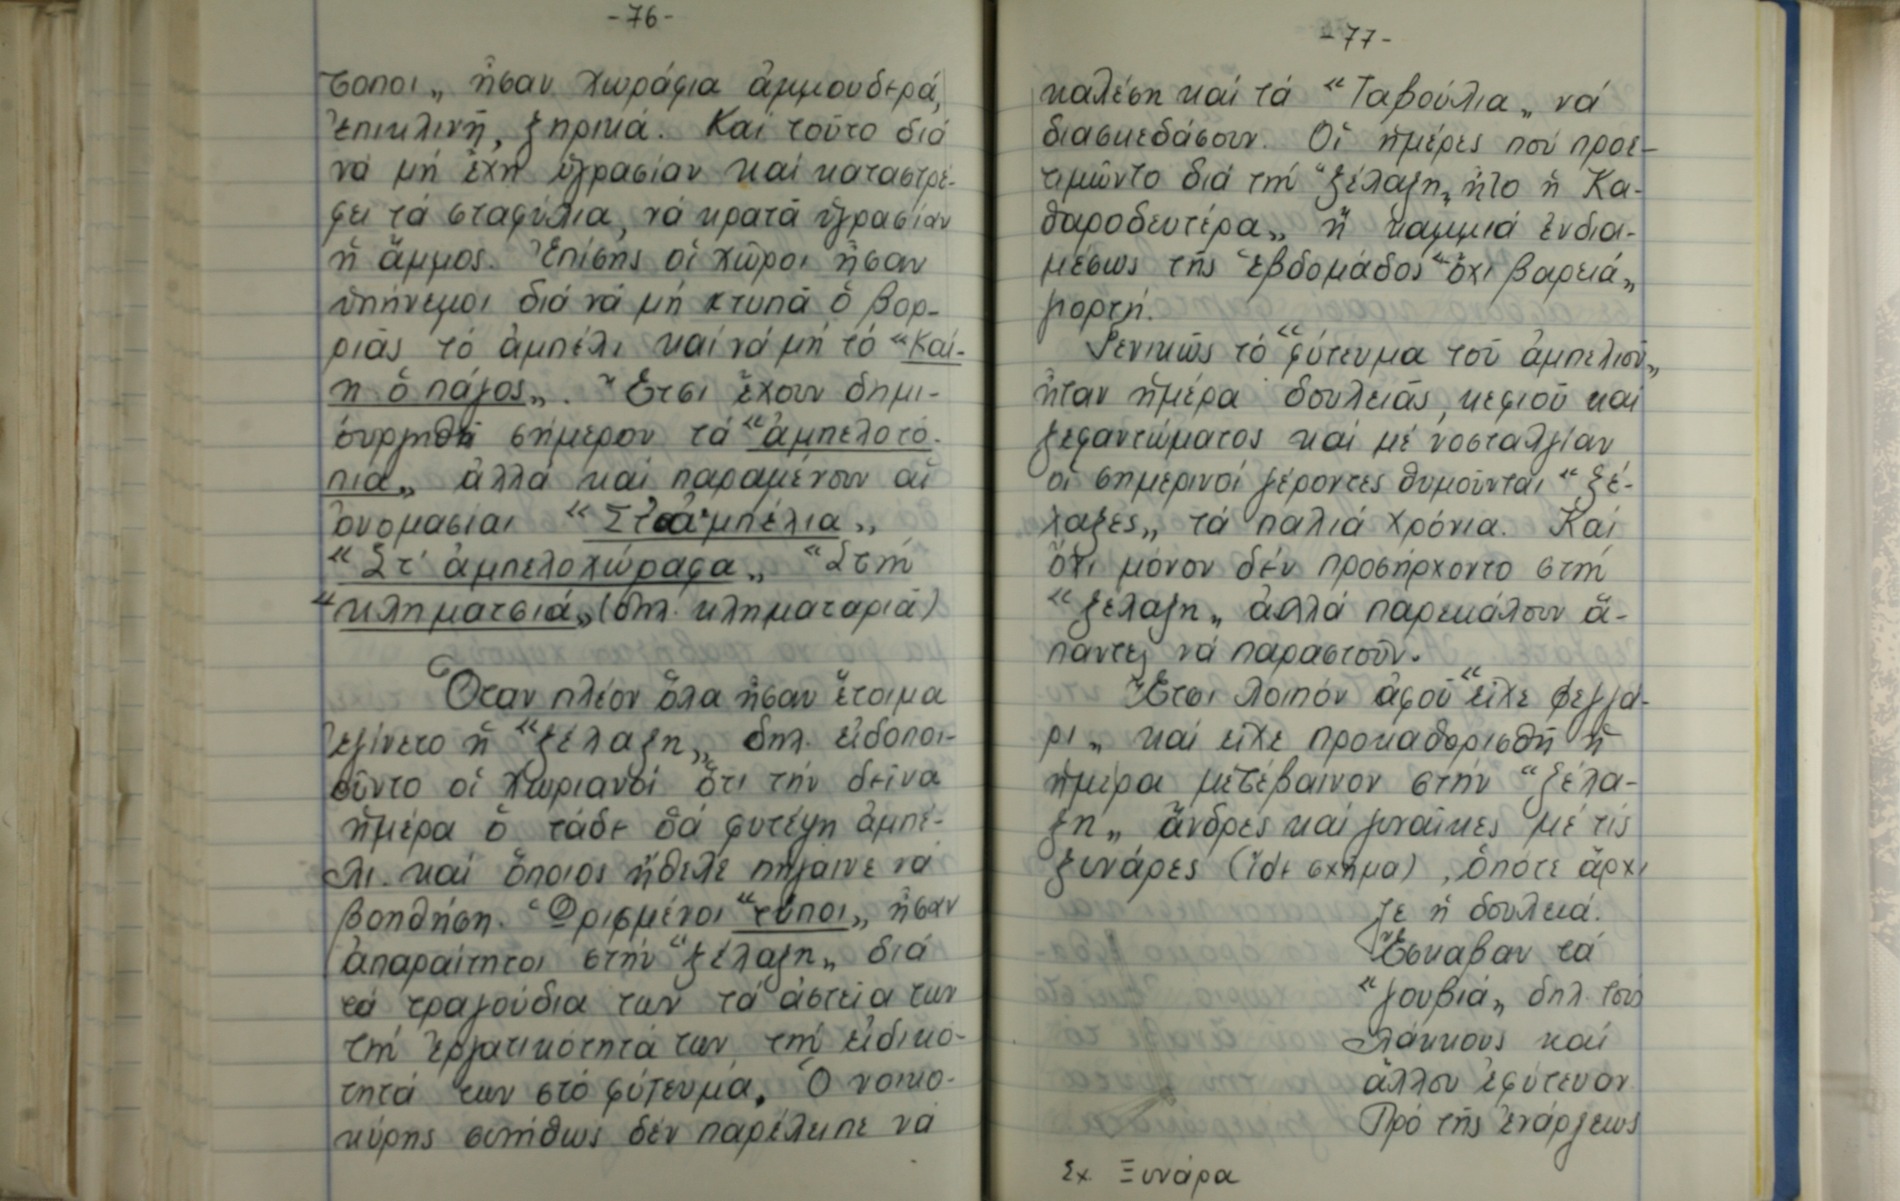 -76-
τοποι„ ἦσαν χωράφια ἀμμουδερά,
ἐπικλινῆ, ξηρικά. Καί τοῦτο διά
νά μή ἔχη ὑγρασίαν καί καταστρέ-
φει τά σταφύλια, νά κρατᾶ ὑγρασίαν
ἡ ἄμμος. Ἐπίσης οἱ χῶροι ἦσαν
ὑπήνεμοι διά νά μή κτυπᾶ ὁ βορ-
ριᾶς τό ἀμπέλι καί νά μή τό “Καί-
η ὁ πάγος„. Ἔτσι ἔχουν δημι-
ουργηθῆ σήμερον τά “ἀμπελοτό-
πια„ ἀλλά καί παραμένουν αἱ
ὀνομασίαι “Στ' ἀμπέλια„
“Στ' ἀμπελοχώραφα„ “Στή
“κληματσιά„ (δηλ. κληματαριά)
Ὅταν πλέον ὅλα ἦσαν ἕτοιμα
ἐγίνετο ἡ “ξέλαξη„ δηλ. εἰδοποι-
οῦντο οἱ χωριανοί ὅτι τήν δεῖνα
ἡμέρα ὁ τάδε θά φυτέψη ἀμπέ-
λι. καί ὅποιος ἤθελε πήγαινε νά
βοηθήση. Ὁρισμένοι “τύποι„ ἦσαν
ἀπαραίτητοι στήν “ξέλαξη„ διά
τά τραγούδια των τά ἀστεῖα των
τή ἐργατικότητά των τή εἰδικό-
τητά των στό φύτευμα. Ὁ νοικο-
κύρης συνήθως δέν παρέλειπε νά
-77-
καλέση καί τά “Ταβούλια„ νά
διασκεδάσουν. Οἱ ἡμέρες πού προε-
τιμῶντο διά τή “ξέλαξη„ ἦτο ἡ Κα-
θαροδευτέρα„ ἤ καμμιά ἐνδια-
μέσως τῆς ἑβδομάδος “ὄχι βαρειά„
γιορτή.
Γενικῶς τό “φύτευμα τοῦ ἀμπελιοῦ„
ἦταν ἡμέρα δουλειᾶς, κεφιοῦ καί
ξεφαντώματος καί μέ νοσταλγίαν
οἱ σημερινοί γέροντες θυμοῦνται “ξέ-
λαξες„ τά παλιά χρόνια. Καί
ὄχι μόνον δέν προσήρχοντο στή
“ξέλαξη„ ἀλλά παρεκάλουν ἅ-
παντες νά παραστοῦν.
Ἔτσι λοιπόν ἀφοῦ “εἶχε φεγγά-
ρι„ καί εἶχε προκαθορισθῆ ἡ
ἡμέρα μετέβαινον στήν “ξέλα-
ξη„ ἄνδρες καί γυναῖκες μέ τίς
ξυνάρες (ἴδε σχῆμα), ὁπότε ἄρχι
ζε ἡ δουλειά.
Ἔσκαβαν τά
“γουβιά„ δηλ. τούς
λάκκους καί
ἄλλου ἐφύτευον
Πρό τῆς ἐνάρξεως
Σχ. Ξυνάρα